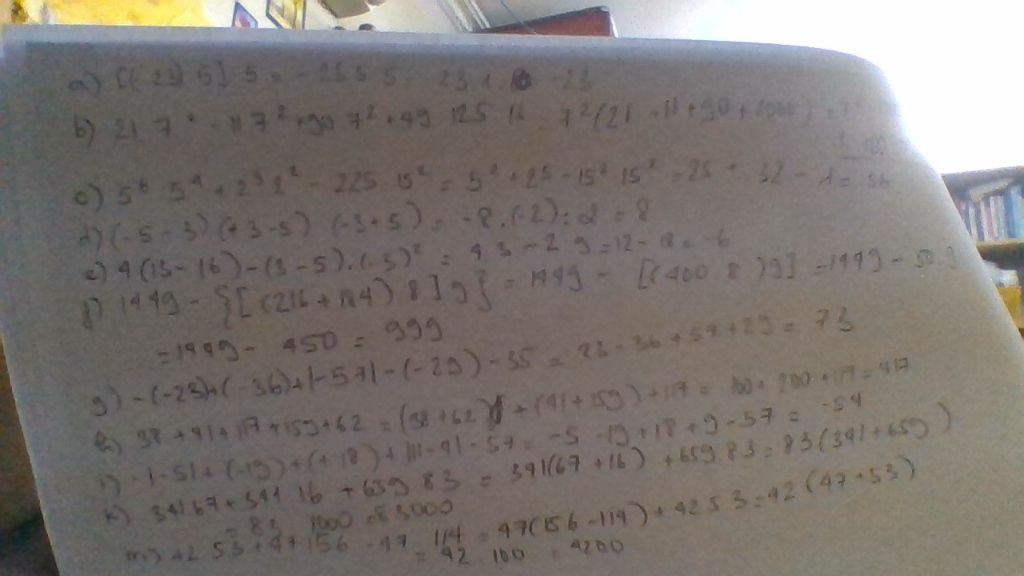 a) [(-23) 5] 5 = -23 5 5 = 23 1 = -23
b) 21 7² - 11 7² + 90 7² + 49 125 16 = 7² (21 - 11 + 90 + 2000) =
c) 5⁶ 5⁴ + 2³ 2² - 225 15² = 5² + 2⁵ - 15² 15² = 25 + 32 - 1 = 56
d) (-5 - 3) (+3 - 5) (-3 + 5) = -8 . (-2) : 2 = 8
e) 4 (13 - 16) - (3 - 5) . (-3)² = 4 3 - 2 9 = 12 - 18 = -6
f) 1449 - {[(216 + 184) 8] 9} = 1449 - [(400 8) 9] = 1449 - 50 9
= 1449 - 450 = 999
g) -(-23) + (-36) + |-57| - (-29) - 35 = 23 - 36 + 57 + 29 = 73
38 + 41 + 117 + 159 + 62 = (38 + 62) + (41 + 159) + 117 = 100 + 200 + 117 = 417
-|-5| + (-19) + (+18) + = -5 -19 + 18 + 9 - 57 = -54
k) 341 67 + 341 16 + 659 83 = 341 (67 + 16) + 659 83 = 83 (341 + 659)
= 83 1000 = 83000
m) 42 53 + 47 156 - 47 114 = 47 (156 - 114) + 42 53 = 42 (47 + 53)
= 42 100 = 4200